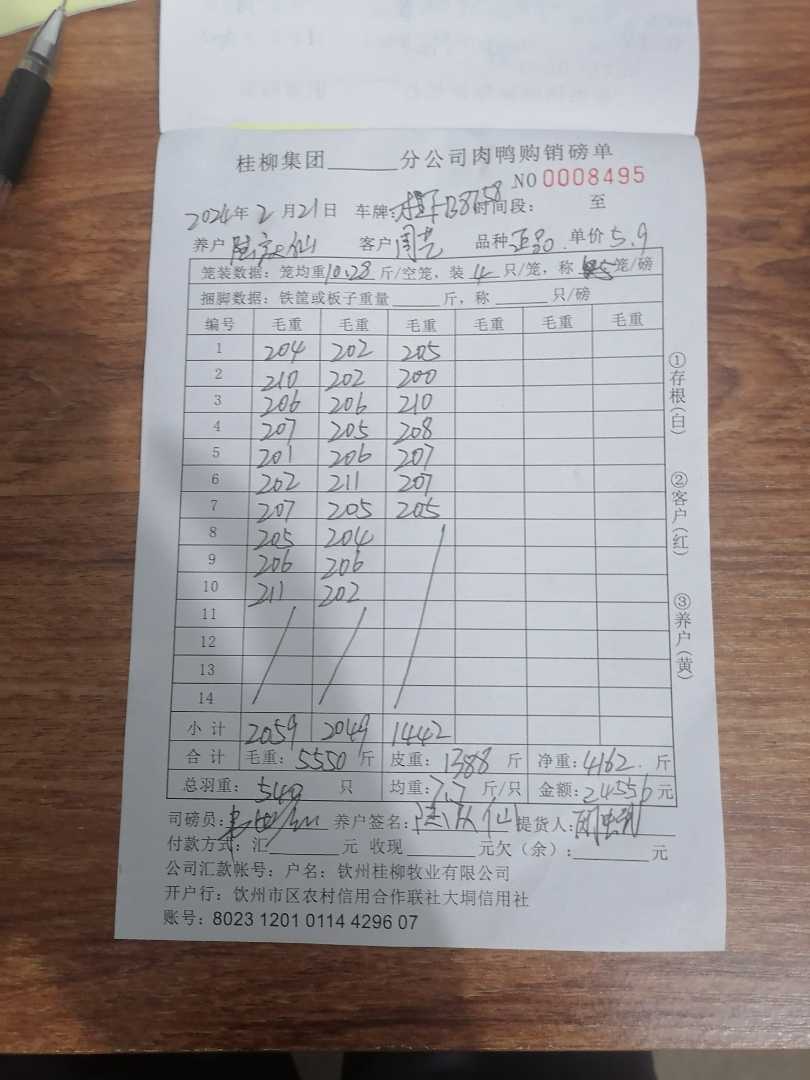 桂柳集团______分公司肉鸭购销磅单
NO 0008495
2024年2月21日 车牌: B8758 时间段: 至
养户 仙 客户 周 品种 正品 单价 5.9
笼装数据: 笼均重10.28斤/空笼, 装4只/笼, 称5笼/磅
捆脚数据: 铁筐或板子重量______斤, 称______只/磅
编号 毛重 毛重 毛重 毛重 毛重 毛重
1 204 202 205
2 210 202 200
3 206 206 210
4 207 205 208
5 201 206 207
6 202 211 207
7 207 205 205
8 205 204
9 206 206
10 211 202
11
12
13
14
小计 2059 2049 1442
合计 毛重: 5550斤 皮重: 1388斤 净重: 4162斤
总羽重: 540只 均重: 7.7斤/只 金额: 24556元
司磅员: 养户签名: 仙 提货人:
付款方式: 汇______元 收现______元欠(余): ______元
公司汇款帐号: 户名: 钦州桂柳牧业有限公司
开户行: 饮州市区农村信用合作联社大垌信用社
账号: 8023 1201 0114 4296 07
①存根(白)
②客户(红)
③养户(黄)